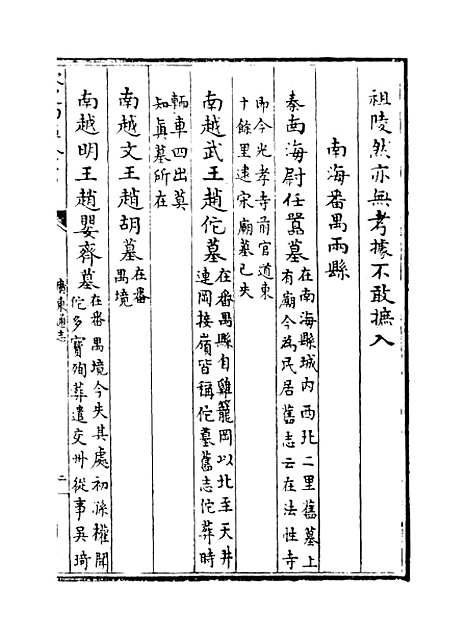 祖陵然亦無考據不敢摭入
南海番禺兩縣
秦南海尉任囂墓在南海縣城內西北二里舊墓上
有廟今為民居舊志云在法性寺
即今光孝寺前官道東
十餘里逮宋廟墓已失
南越武王趙佗墓在番禺縣自雞籠岡以北至天井
連岡接嶺皆稱佗墓舊志佗葬時
輀車四出莫
知真墓所在
南越文王趙胡墓在番
禺境
南越明王趙嬰齊墓在番禺境今失其處初孫權聞
佗多寶殉葬遣交州從事吳瑀
廣東通志
二